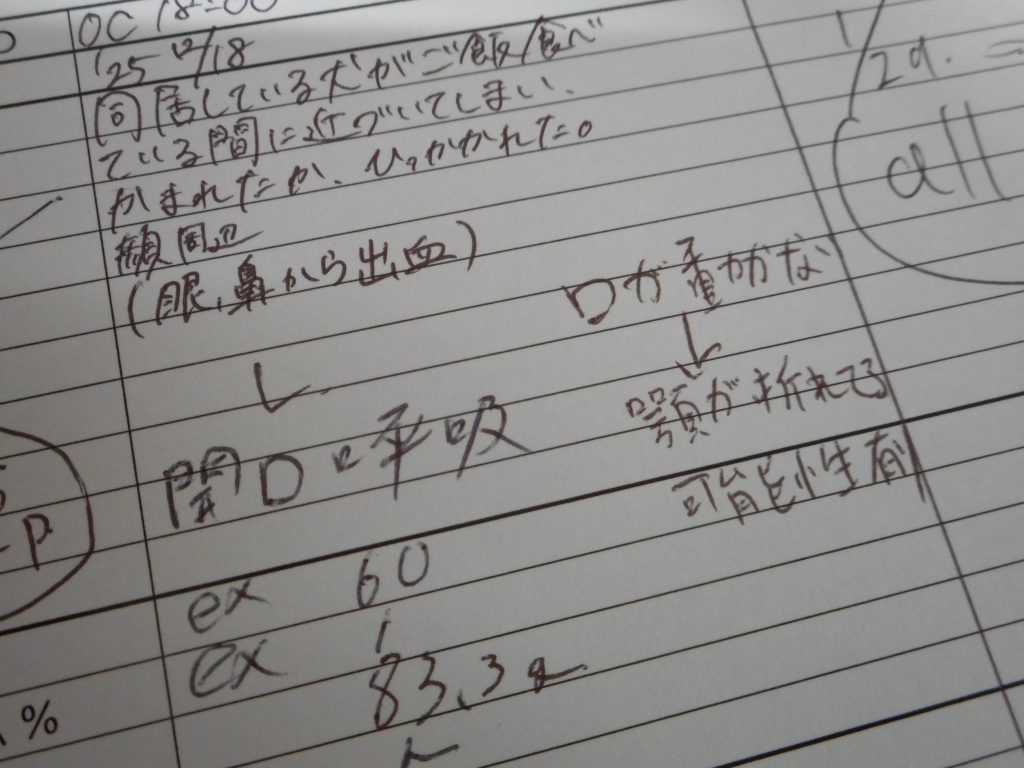 '25 12/18
同居している犬がご飯食べ
ている間に近づいてしまい、
かまれたか、ひっかかれた。
顔周辺
(眼、鼻から出血)
口が重かな
↓
顎が折れてる
可能性有
開口呼吸
ex 60
ex 1
83.3
%
P
2d.
all